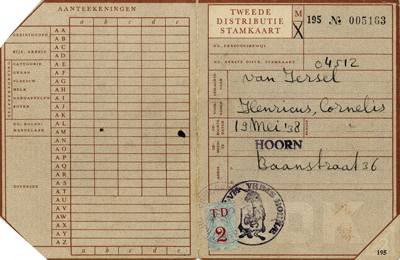 AANTEEKENINGEN
a b c d e
GEZINSHOOFD AA
AB
BIJZ. GEGEV. AC
AD
CATEGORIE AE
GRAAN AF
VLEESCH AG
MELK AH
AARDAPPELEN AI
BOTER AJ
AK
NO. KOLEN- AL
HANDELAAR AM
AN
AO
AP
AQ
AR
DIVERSEN AS
AT
AU
AV
AW
AX
AY
AZ
a b c d e
TWEEDE
DISTRIBUTIE
STAMKAART
M
X
195 № 005163
NO. PERSOONSBEWIJS
NO. EERSTE DISTR. STAMKAART
04512
van Iersel
Henricus, Cornelis
19 Mei '38
HOORN
Baanstraat 36
TD
2
195